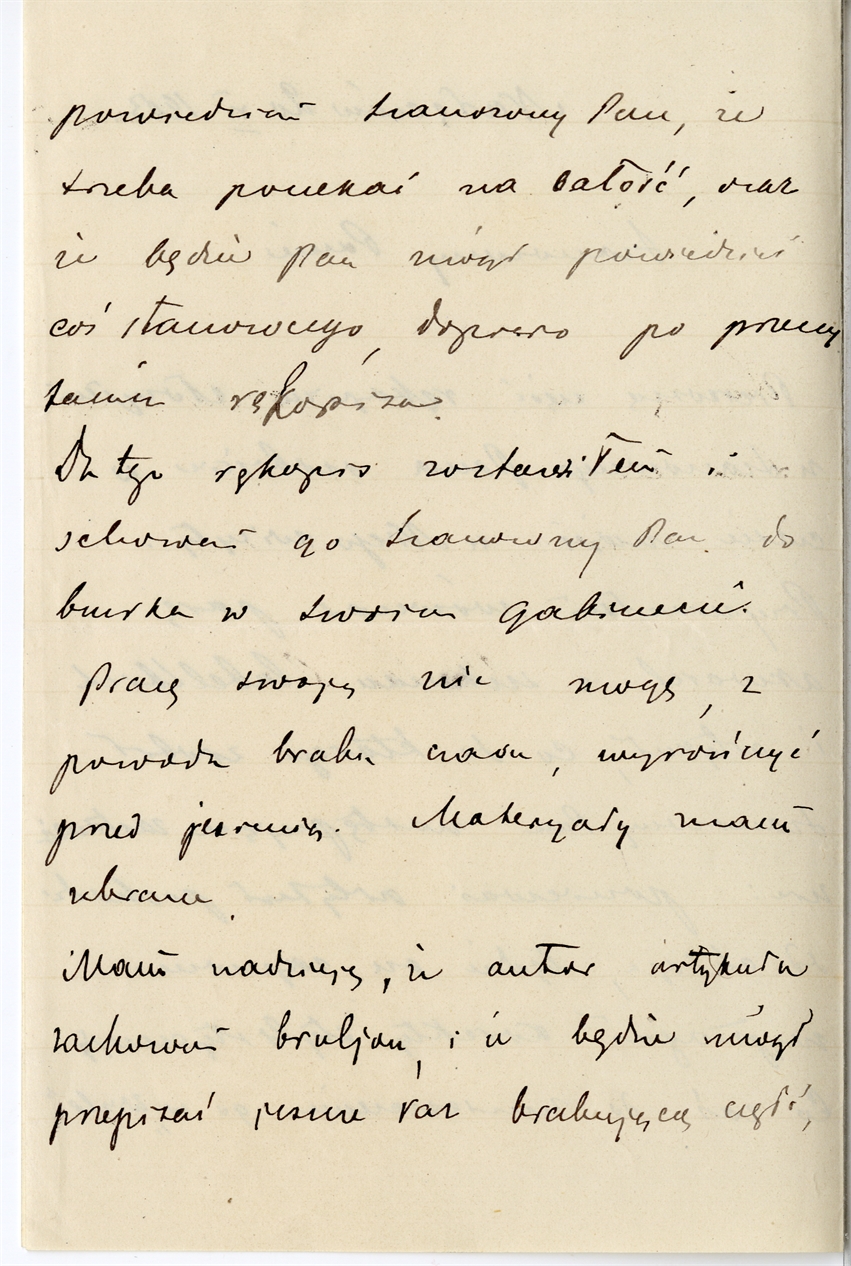 powiedział Szanowny Pan, że
trzeba poczekać na całość, oraz
że będzie Pan mógł powiedzieć
coś stanowczego, dopiero po przeczy
taniu rękopisu.
Dla tego rękopis zostawiłem i
schował go Szanowny Pan do
biurka w swoim gabinecie.
Pracę swoją nie mogę, z
powodu braku czasu, wyróśnić
przed jesienią. Materyały mam
zebrane.
Mam nadzieję, że autor artykułu
zachował bruljon, i że będzie mógł
przepisać jeszcze raz brakującą część,